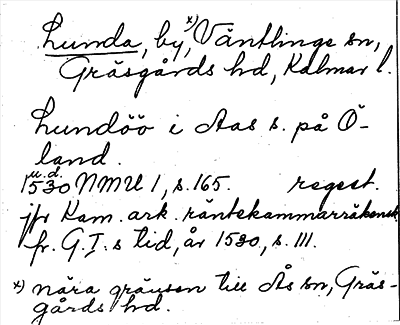 Lunda, by,x) Ventlinge sn,
Gräsgårds hd, Kalmar l.
Lundöö i Aas s. på Ö-
land.
u.d.
1530 NMU 1, s. 165. regest.
jfr Kam. ark. räntekammarräkensk.
fr. G.I.s tid, år 1530, s. 111.
x) nära gränsen till Ås sn, Gräs-
gårds hd.